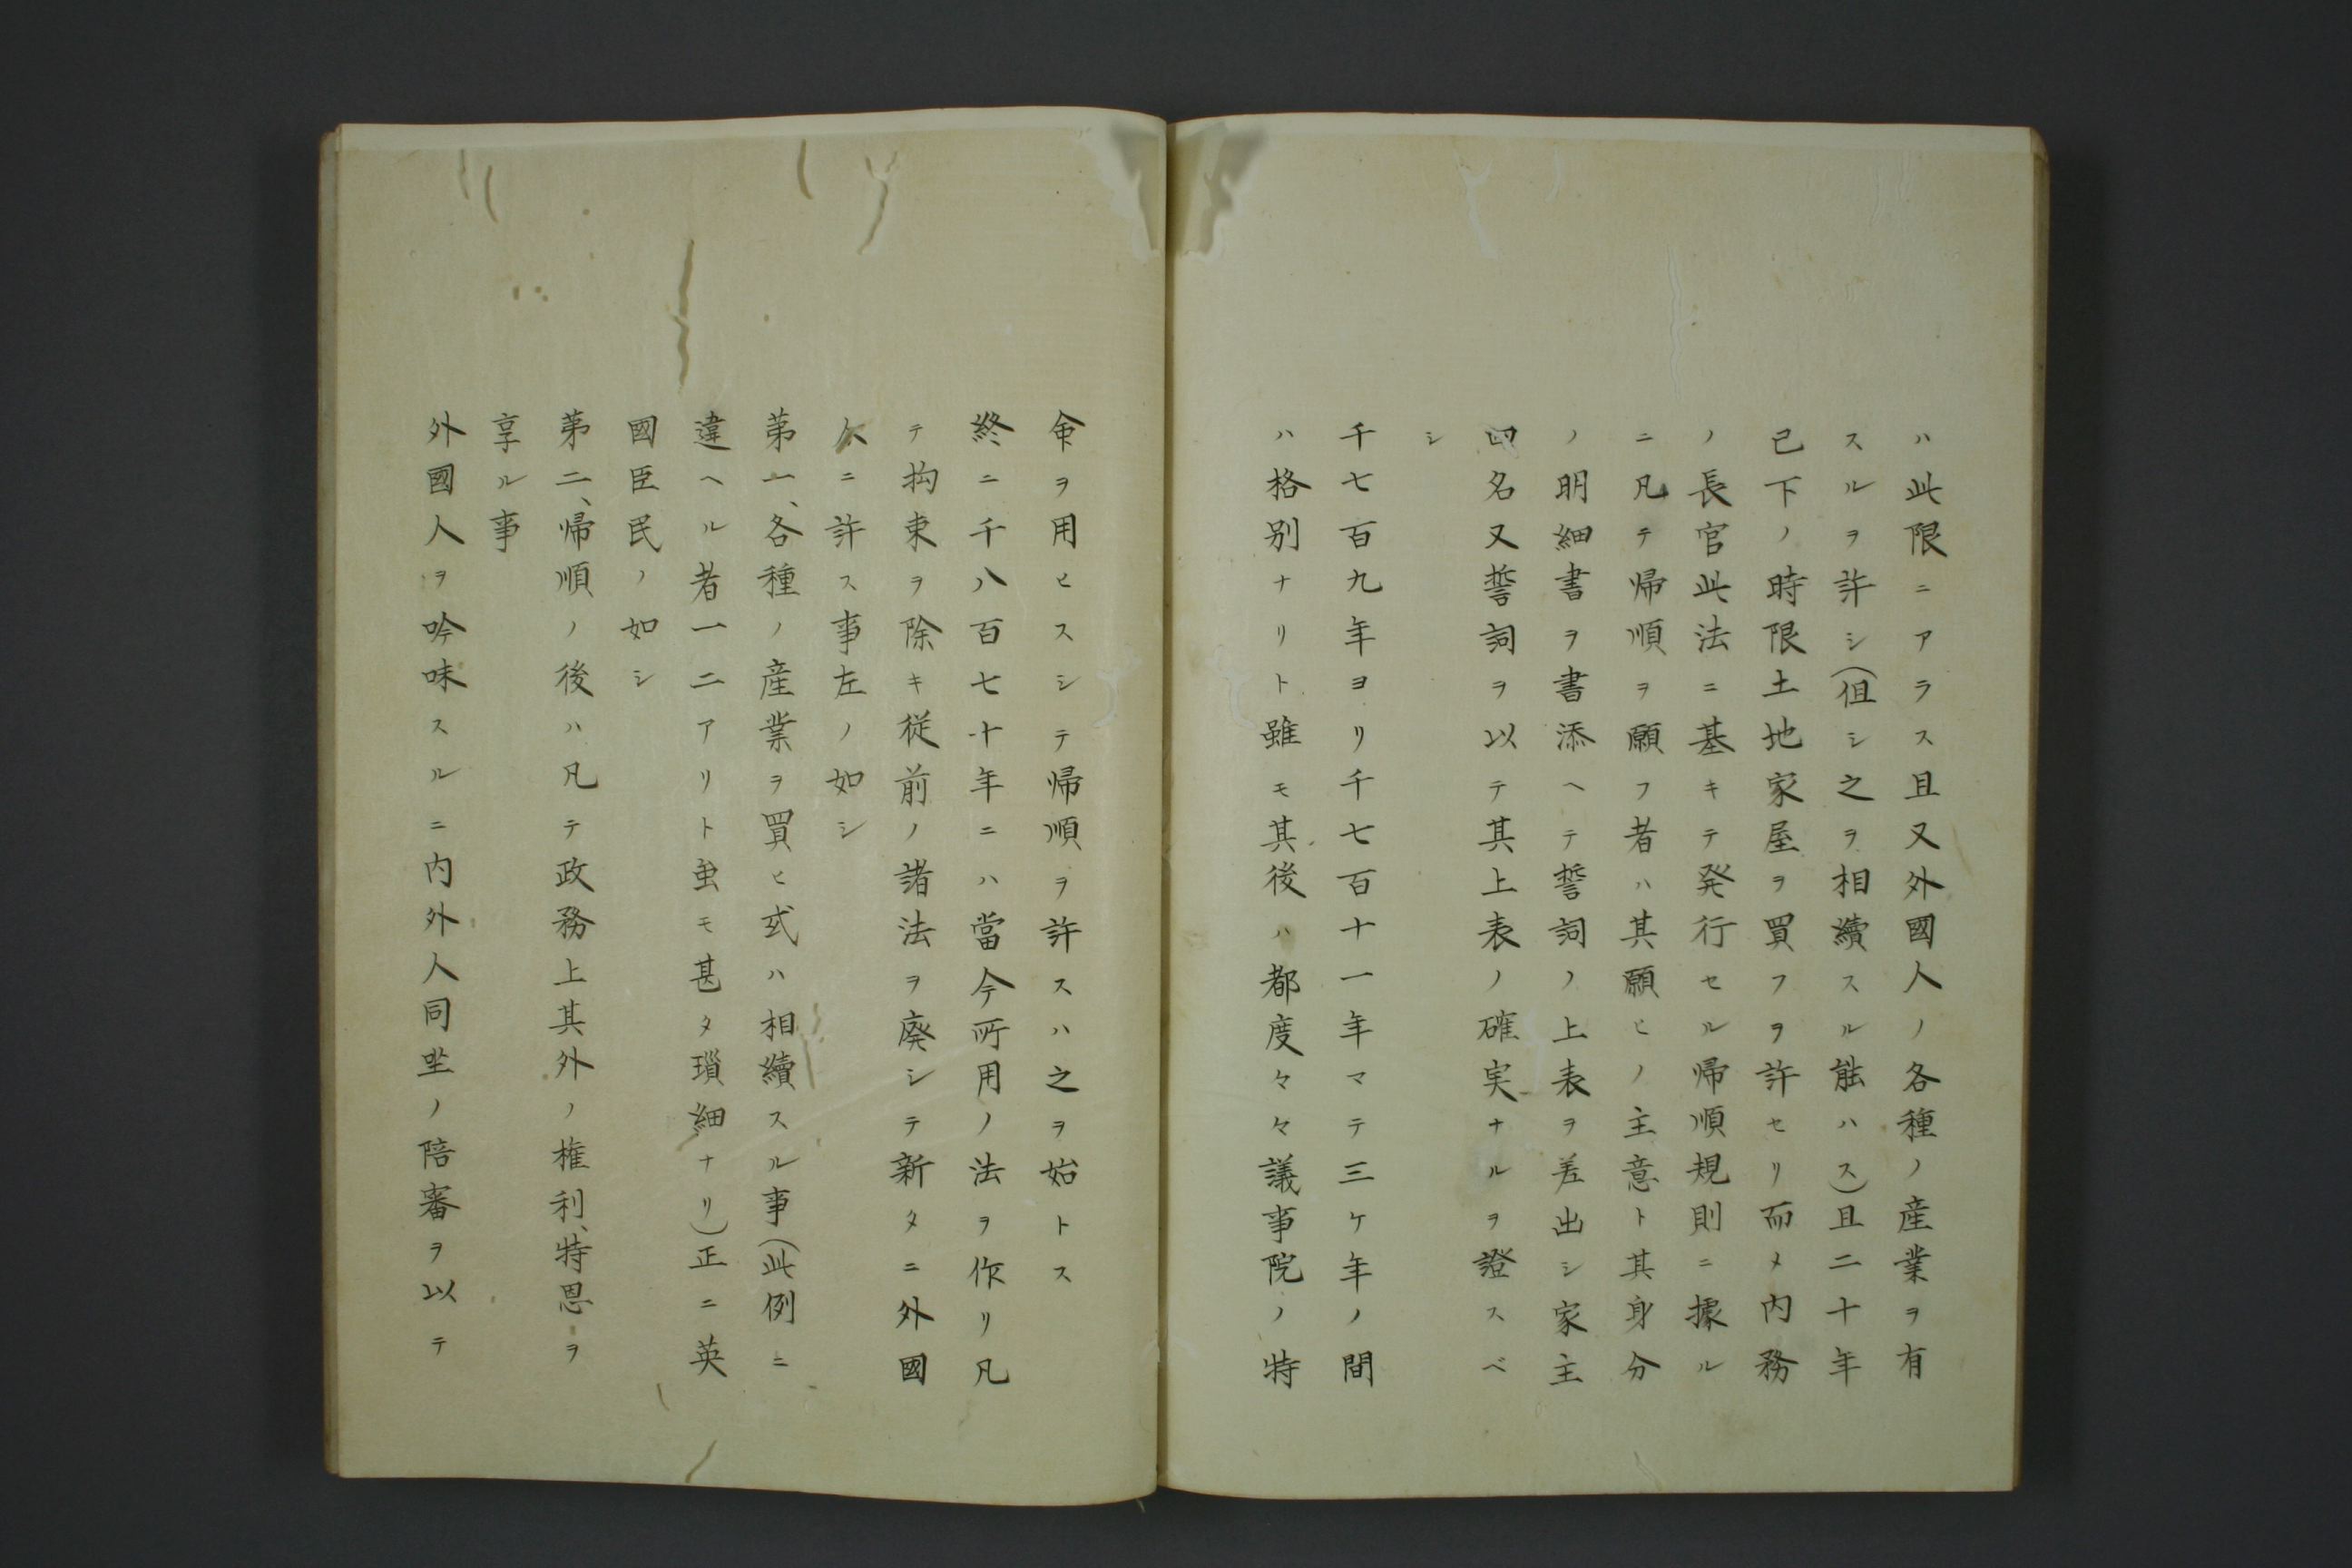 ハ此限ニアラス且又外國人ノ各種ノ産業ヲ有
スルヲ許シ(但シ之ヲ相續スル能ハス)且二十年
已下ノ時限土地家屋ヲ買フヲ許セリ而メ内務
ノ長官此法ニ基キテ発行セル帰順規則ニ據ル
ニ凡テ帰順ヲ願フ者ハ其願ヒノ主意ト其身分
ノ明細書ヲ書添ヘテ誓詞ノ上表ヲ差出シ家主
四名又誓詞ヲ以テ其上表ノ確実ナルヲ證スベ
シ
千七百九年ヨリ千七百十一年マテ三ケ年ノ間
ハ格别ナリト雖モ其後ハ都度々々議事院ノ特
命ヲ用ヒスシテ帰順ヲ許スハ之ヲ始トス
終ニ千八百七十年ニハ當今所用ノ法ヲ作リ凡
テ拘束ヲ除キ従前ノ諸法ヲ廃シテ新タニ外國
人ニ許ス事左ノ如シ
第一、各種ノ産業ヲ買ヒ或ハ相續スル事(此例ニ
違ヘル者一二アリト虽モ甚タ瑣細ナリ)正ニ英
國臣民ノ如シ
第二、帰順ノ後ハ凡テ政務上其外ノ権利、特恩ヲ
享ル事
外國人ヲ吟味スルニ内外人同坐ノ陪審ヲ以テ